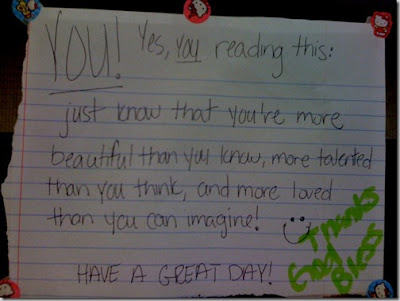 YOU! Yes, you reading this:
just know that you're more
beautiful than you know, more talented
than you think, and more loved
than you can imagine!
HAVE A GREAT DAY!
Thanks
God
Bless